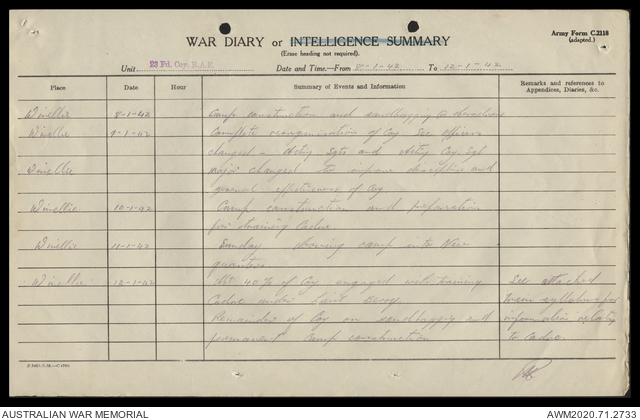 Army Form C.2118
(adapted.)
WAR DIARY or INTELLIGENCE SUMMARY
(Erase heading not required).
Unit 23 Fd. Coy. R.A.E. Date and Time—From 8-1-42 To 12-1-42
Place Date Hour Summary of Events and Information Remarks and references to Appendices, Diaries, &c.
Winellie 8-1-42 Camp construction and sandbagging
Winellie 9-1-42 Complete reorganisation of Coy Sec officers
changed – Actg Sgts and Actg Coy Sgt
Winellie major changed to improve discipline and
general effectiveness of Coy
Winellie 10-1-42 Camp construction and preparation
for training Cadre
Winellie 11-1-42 Sunday moving camp into New
quarters
Winellie 12-1-42 40% of Coy engaged with training See attached
Cadre under Lieut syllabus for
Remainder of Coy on sandbagging and information relating
permanent camp construction to Cadre.
AUSTRALIAN WAR MEMORIAL AWM2020.71.2733